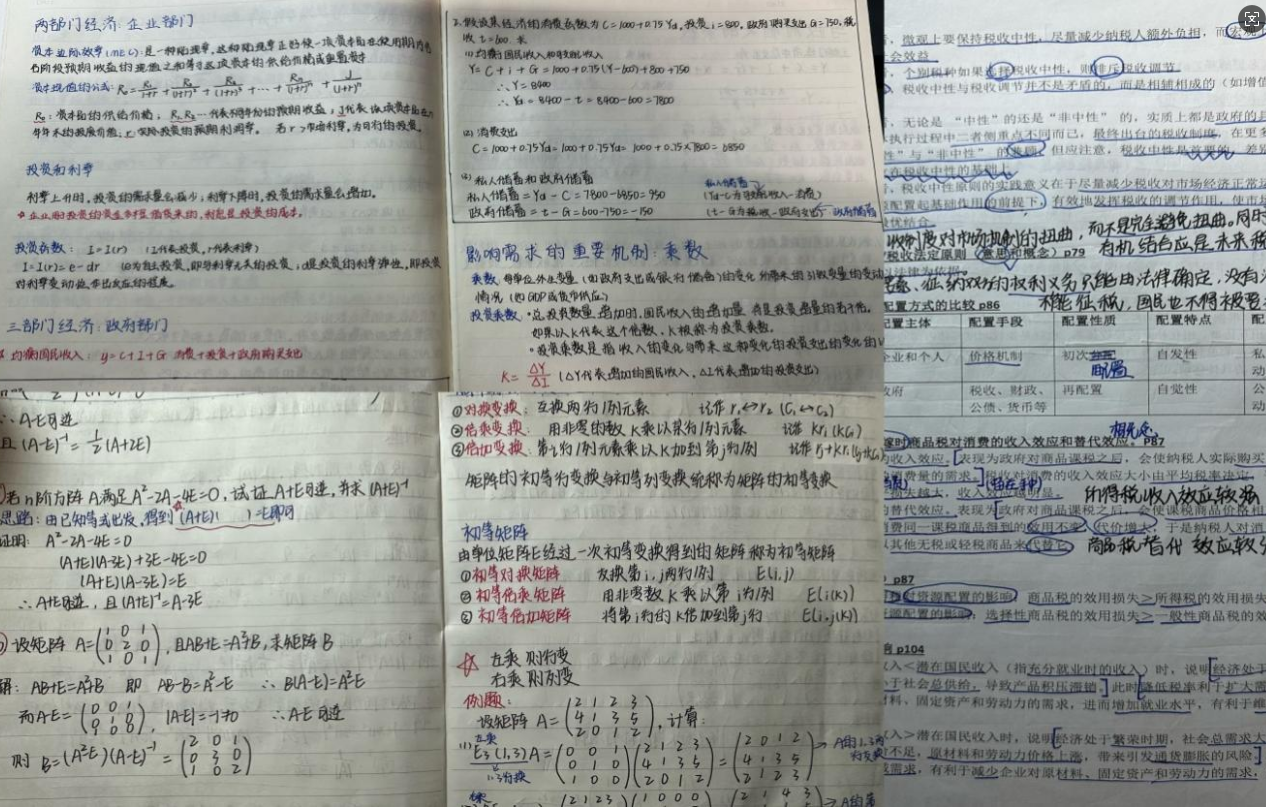 两部门经济：企业部门
资本边际效率(MEC)：是一种贴现率，这种贴现率正好使一项资本品在使用期内各
各阶段预期收益的现值之和等于这项资本的供给价格或重置资本
资本现值的公式：R₀ = R₁/(1+r) + R₂/(1+r)² + R₃/(1+r)³ + ⋯ + Rₙ/(1+r)ⁿ + J/(1+r)ⁿ
R₀：资本品的供给价格；R₁、R₂…代表不同年份的预期收益；J代表该项资本品在n
年年末的报废价值；r 若r>市场利率，为可行的投资。
投资和利率
利率上升时，投资的需求量会减少；利率下降时，投资的需求量会增加。
企业用于投资的资金多半是借贷来的，利息是投资的成本。
投资函数：I=I(r) (I代表投资，r代表利率)
I=I(r)=e-dr e为自主投资，即与利率无关的投资；d是投资的利率弹性，即投资
对利率变动做出反应的程度。
三部门经济：政府部门
均衡国民收入：y=C+I+G 消费+投资+政府购买支出
2.假设某经济的消费函数为C=1000+0.75Yd，投资i=800，政府购买支出G=750，税
收t=600. 求
(1)均衡国民收入和可支配收入
Y=C+i+G=1000+0.75(Y-600)+800+750
∴Y=8400
∴Yd=8400-t=8400-600=7800
(2)消费支出
C=1000+0.75Yd=1000+0.75Yd=1000+0.75×7800=6850
(3)私人储蓄和政府储蓄
私人储蓄=Yd-C=7800-6850=950
政府储蓄=t-G=600-750=-150
私人储蓄
(Yd-C为可支配收入-消费)
(t-G为税收-政府支出) 政府储蓄
影响需求的重要机制：乘数
乘数：每单位外生变量(如政府支出或银行储备)的变化所带来的引致变量的变动
情况(如GDP或货币供应)
投资乘数：·总投资数量增加时，国民收入的增量将是投资增量的若干倍。
如果以K代表这个倍数，K被称为投资乘数。
·投资乘数是指收入的变化与带来这种变化的投资支出的变化的
K=ΔY/ΔI (ΔY代表增加的国民收入，ΔI代表增加的投资支出)
微观上要保持税收中性，尽量减少纳税人额外负担，而宏观
会效益
个别税种如果选择税收中性，则排斥税收调节
税收中性与税收调节并不是矛盾的，而是相辅相成的（如增值
无论是“中性”的还是“非中性”的，实质上都是政府的
执行过程中二者侧重点不同而已，最终出台的税收制度，在更多
性”与“非中性”的兼顾。但应注意，税收中性是首要的，差别
在税收中性的基础上
税收中性原则的实践意义在于尽量减少税收对市场经济正常运
配置起基础作用的前提下，有效地发挥税收的调节作用，使市场
优结合
收制度对市场机制的扭曲，而不是完全避免扭曲。同时
税收法定原则（意思和概念）p79 有机结合应是未来税
征纳双方的权利义务只能由法律确定，没有法
不能征税，国民也不得被要
配置方式的比较 p86
配置主体 配置手段 配置性质 配置特点 配
企业和个人 价格机制 初次 配置 自发性 私
动
政府 税收、财政、公债、货币等 再配置 自觉性 公
动
商品税对消费的收入效应和替代效应，P87
收入效应。表现为政府对商品课税之后，会使纳税人实际购买
消费量的需求。税收对消费的收入效应大小由平均税率决定
损失越大，收入效应越明显。 所得税收入效应较强
替代效应。表现为政府对商品课税之后，会使课税商品价格相
费同一课税商品得到的效用不变，代价增大，于是纳税人对消
其他无税或轻税商品来代替它 商品税替代效应较
p87
对资源配置的影响 商品税的效用损失≥所得税的效用损失
源配置的影响：选择性商品税的效用损失≥一般性商品税的效
p104
入<潜在国民收入（指充分就业时的收入）时，说明经济处于
于社会总供给，导致产品积压滞销，此时降低税率利于扩大需
料、固定资产和劳动力的需求，进而增加就业水平，有利于维
入>潜在国民收入时，说明经济处于繁荣时期，社会总需求大
不足，原材料和劳动力价格上涨，带来引发通货膨胀的风险。
需求，有利于减少企业对原材料、固定资产和劳动力的需求，
∴A-E可逆
且(A-E)⁻¹=½(A+2E)
若n阶方阵A满足A²-2A-4E=0，试证A+E可逆，并求(A+E)⁻¹
思路：由已知等式出发，得到(A+E)( )=E即可
证明：A²-2A-4E=0
(A+E)(A-3E)+3E-4E=0
(A+E)(A-3E)=E
∴A+E可逆，且(A+E)⁻¹=A-3E
设矩阵 A=(1 0 1; 0 2 0; 1 0 1)，且AB+E=A²+B，求矩阵B
解：AB+E=A²+B 即 AB-B=A²-E ∴B(A-E)=A²-E
而A-E=(0 0 1; 0 1 0; 1 0 0)，|A-E|=-1≠0 ∴A-E可逆
则 B=(A²-E)(A-E)⁻¹=(2 0 1; 0 3 0; 1 0 2)
①对换变换：互换两行/列元素 记作 r₁↔r₂ (C₁↔C₂)
②倍乘变换：用非零的数K乘以某行/列元素 记作 Kri (KCi)
③倍加变换：第i行/列元素乘以K加到第j行/列 记作 rj+Kri
矩阵的初等行变换与初等列变换统称为矩阵的初等变换
初等矩阵
由单位矩阵E经过一次初等变换得到的矩阵称为初等矩阵
①初等对换矩阵 交换第i、j两行/列 E(i,j)
②初等倍乘矩阵 用非零数K乘以第i行/列 E(i(K))
③初等倍加矩阵 将第j行的K倍加到第i行 E(i,j(K))
☆ 左乘则行变
右乘则列变
例题：
设矩阵 A=(2 1 2 3; 4 1 3 5; 2 0 1 2)，计算：
左乘
(1) E₃(1,3)A=(0 0 1; 0 1 0; 1 0 0)(2 1 2 3; 4 1 3 5; 2 0 1 2)=(2 0 1 2; 4 1 3 5; 2 1 2 3)→A的1.3两
1.3行换
(2 1 2 3)(1 0 0 0)(2 1 4 3)→A的第